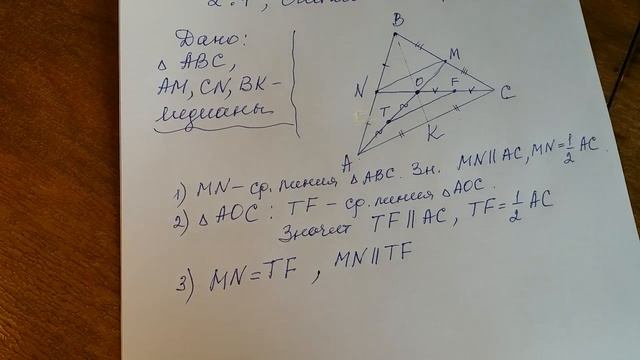 2:1,
Дано:
△ ABC,
AM, CN, BK-
медианы
B
M
N
O
F
C
T
K
A
1) MN - ср. линия △ABC. Зн. MN || AC, MN = 1/2 AC.
2) △ AOC : TF - ср. линия △AOC.
Значит TF || AC, TF = 1/2 AC
3) MN = TF , MN || TF